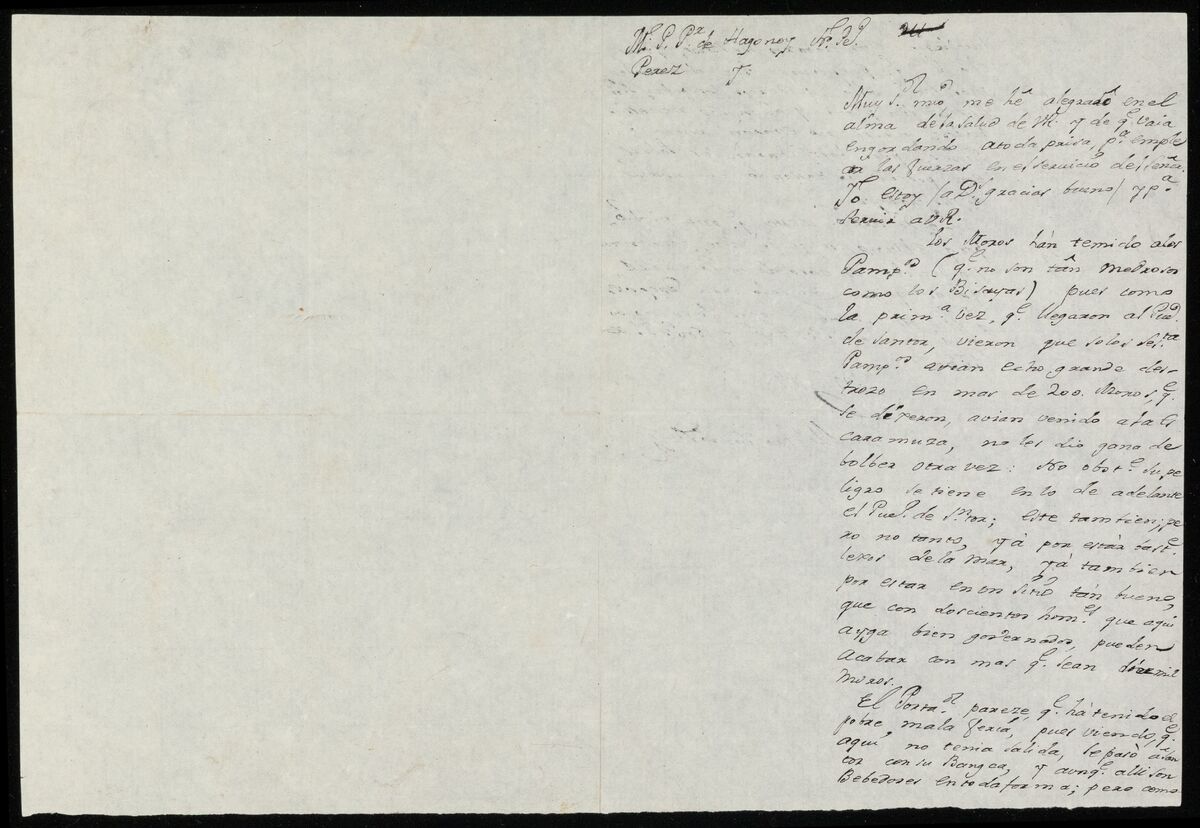 M. P. Pr. de Hagonoy Fr. Po.
Perez Y.
Muy Sor. mio, me hê alegrado en el
alma de la salud de VR. y de qe. vaia
engordando a toda prisa, pa. emple
ar las fuerzas en el servicio del señor.
Yo estoy (a Ds. gracias bueno) y pa.
servir a VR.
Los Moros hán temido a los
Pampos. (qe. no son tân medrosos
como los Bisayas) pues como
la prima. vez, qe. llegaron al Pueo.
de Santor, vieron que solos sesta.
Pampos. avian echo grande des-
trozo en mas de 200. Moros, qe.
se dixeron, avian venido a la es
caramuza, no les dio gana de
bolber otra vez: No obste. su pe
ligro se tiene en lo de adelante
el Pueo. de Stor; este tamtien; pe
ro no tanto, yà por estàr baste.
lexos de la mar, yà tamtien
por estar en un sitio tán bueno,
que con doscientos homes. que aqui
ayga bien governados, pueden
acabar con mas qe. sean mil
moros.
El Portador. pareze, qe. hà tenido el
pobre mala feria, pues viendo, qe.
aqui no tenia salida, se pasò a San
tor con su Bangca, y aunqe. alli son
Bebedores en toda forma; pero como